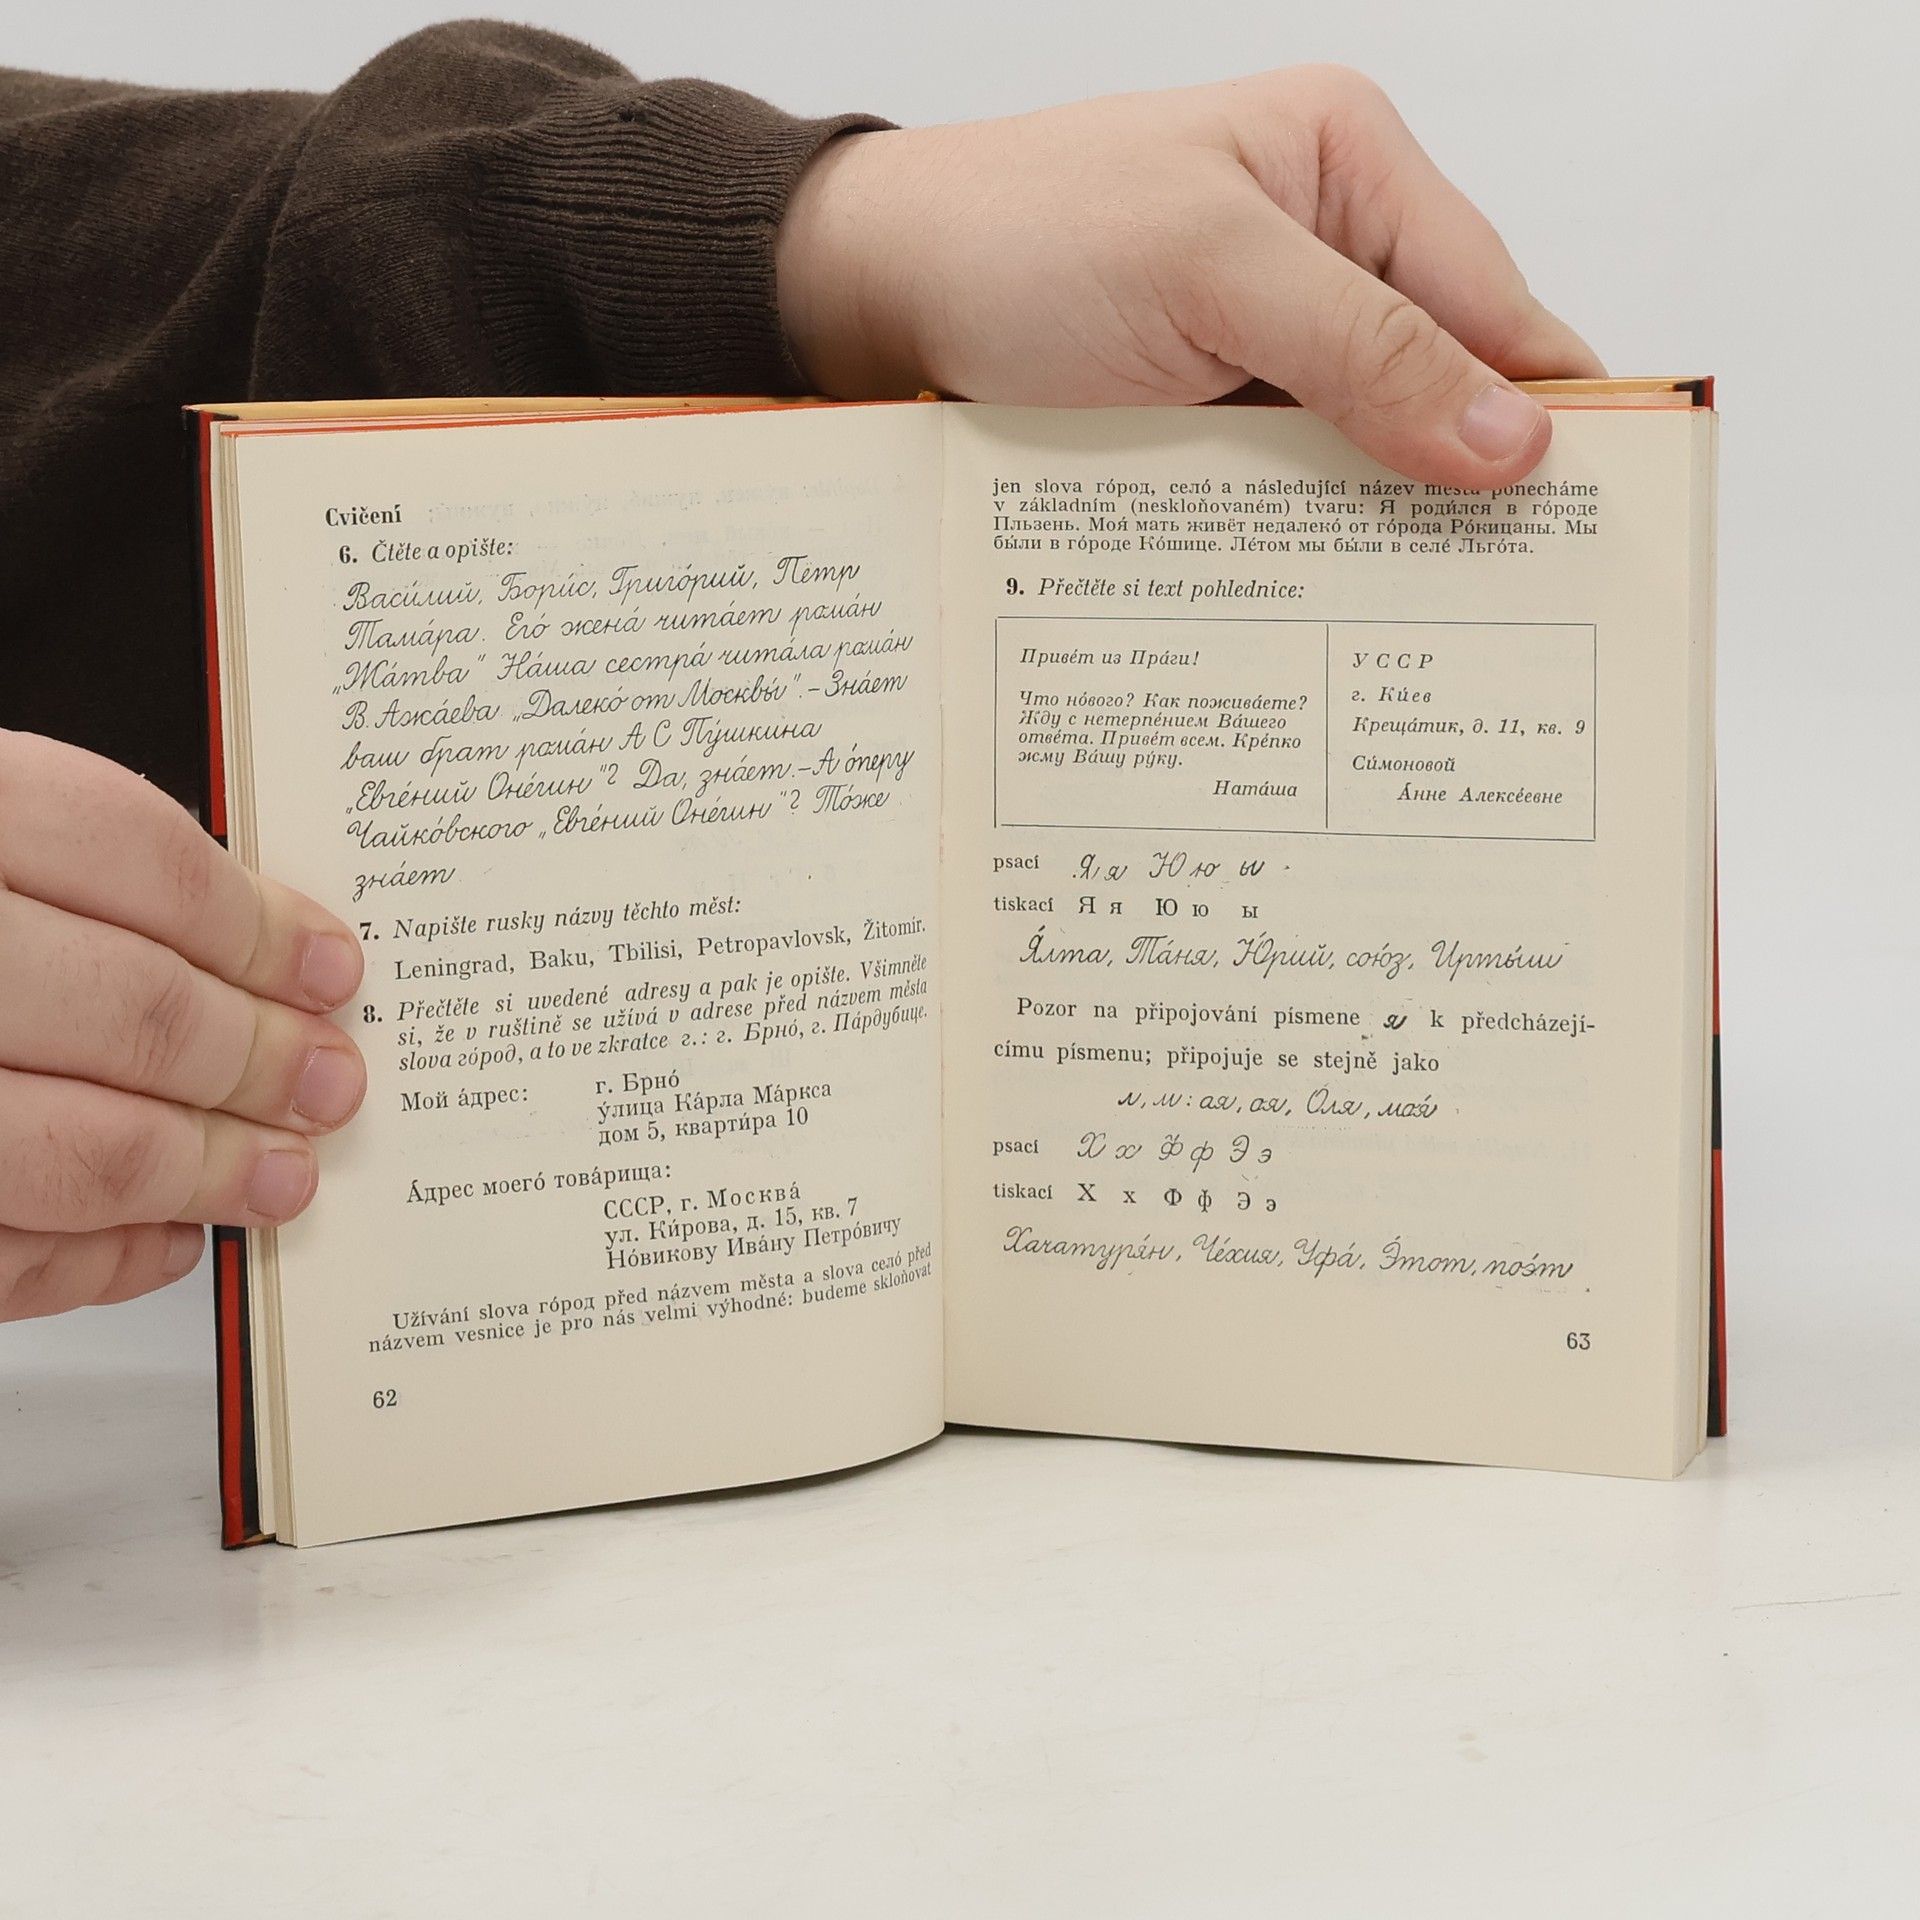 Cvičení
6. Čtěte a opište:
Васи́лий, Бори́с, Григо́рий, Пётр
Тама́ра. Его́ жена́ чита́ет рома́н
„Жа́тва“ На́ша сестра́ чита́ла рома́н
В. Ажа́ева „Далеко́ от Москвы́“. – Зна́ет
ваш брат рома́н А С Пу́шкина
„Евге́ний Оне́гин“? Да, зна́ет. – А о́перу
Чайко́вского „Евге́ний Оне́гин“? То́же
зна́ет
7. Napište rusky názvy těchto měst:
Leningrad, Baku, Tbilisi, Petropavlovsk, Žitomír.
8. Přečtěte si uvedené adresy a pak je opište. Všimněte
si, že v ruštině se užívá v adrese před názvem města
slova го́род, a to ve zkratce г.: г. Брно́, г. Па́рдубице.
Мой а́дрес: г. Брно́
у́лица Ка́рла Ма́ркса
дом 5, кварти́ра 10
А́дрес моего́ това́рища:
СССР, г. Москва́
ул. Ки́рова, д. 15, кв. 7
Но́викову Ива́ну Петро́вичу
Užívání slova го́род před názvem města a slova село́ před
názvem vesnice je pro nás velmi výhodné: budeme skloňovat
62
jen slova го́род, село́ a následující název města ponecháme
v základním (neskloňovaném) tvaru: Я роди́лся в го́роде
Пльзень. Моя́ мать живёт недалеко́ от го́рода Ро́кицаны. Мы
бы́ли в го́роде Ко́шице. Ле́том мы бы́ли в селе́ Льго́та.
9. Přečtěte si text pohlednice:
Приве́т из Пра́ги!
Что но́вого? Как пожива́ете?
Жду с нетерпе́нием Ва́шего
отве́та. Приве́т всем. Кре́пко
жму Ва́шу ру́ку.
Ната́ша
УССР
г. Ки́ев
Креща́тик, д. 11, кв. 9
Си́моновой
А́нне Алексе́евне
psací Я я Ю ю ы
tiskací Я я Ю ю ы
Я́лта, Та́ня, Ю́рий, сою́з, Ирты́ш
Pozor na připojování písmene я k předcházejí-
címu písmenu; připojuje se stejně jako
л, м: ая, оя, Оля, моя́
psací Х х Ф ф Э э
tiskací Х х Ф ф Э э
Хачатуря́н, Че́хия, Уфа́, Э́тот, поэ́т
63